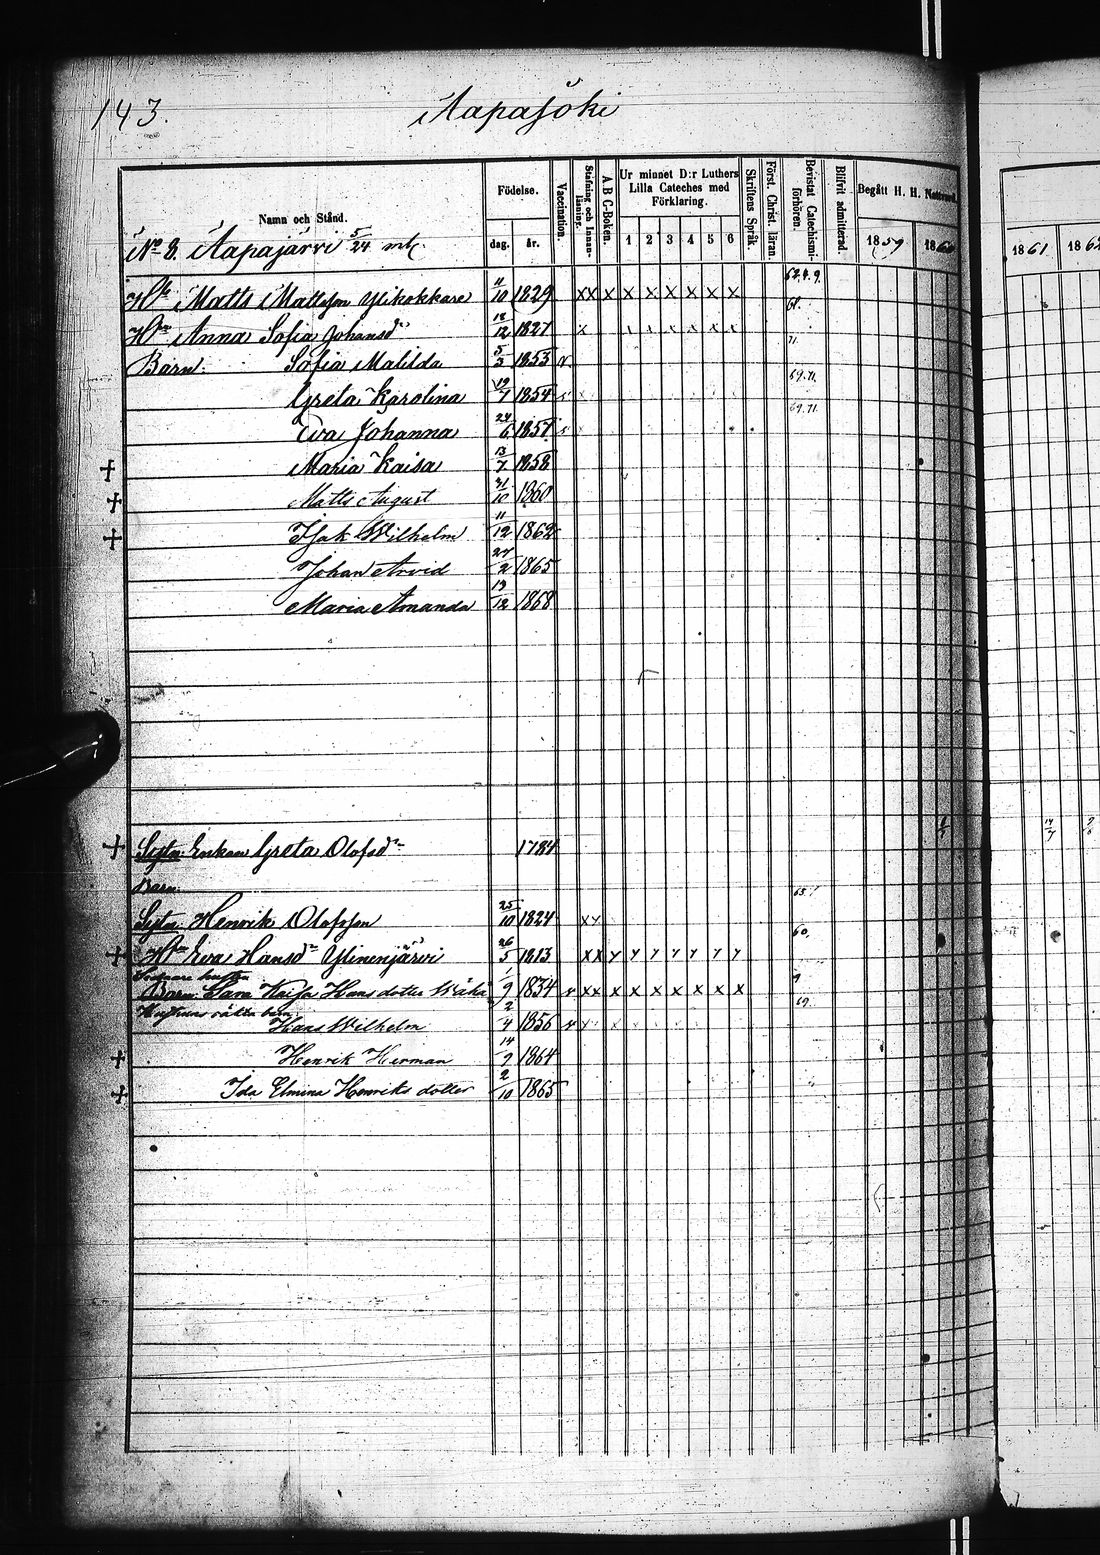 143.
Aapajoki
Namn och Stånd.
Födelse.
dag. år.
Vaccination.
Stafning och Innanläsning.
A B C-Boken.
Ur minnet D:r Luthers Lilla Cateches med Förklaring.
1 2 3 4 5 6
Skriftens Språk.
Förest. Christ. läran.
Bevistat Catechismiförhören.
Blifvit admitterad
Begått H. H. Nattvard.
1859 1860
1861 1862
No 8. Aapajärvi 5/24 mtl.
Matts Mattsson Ylikokkare 11/10 1829 xx x x x x x x x
Anna Sofia Johansdr 18/12 1827 x
71.
Barn: Sofia Matilda 5/3 1853
69.71.
Greta Karolina 19/7 1854
69.71.
Eva Johanna 24/6 1857
+ Maria Kaisa 13/7 1858
+ Matts August 31/10 1860
+ Isak Wilhelm 11/12 1862
Johan Arvid 27/2 1865
Maria Amanda 13/12 1868
+ Sytn. Enkan Greta Olofsdr 1784
Barn:
Sytn. Henrik Olofsson 25/10 1824 xx
60.
+ Eva Hansdr Ylinenjärvi 26/5 1813 xx y y y y y y y
Barn: Sara Kaisa Hansdotter 1/9 1834 xx x x x x x x x
69.
Hans Wilhelm 2/4 1856
+ Henrik Herman 14/9 1864
+ Ida Elmina Henriksdotter 2/10 1865